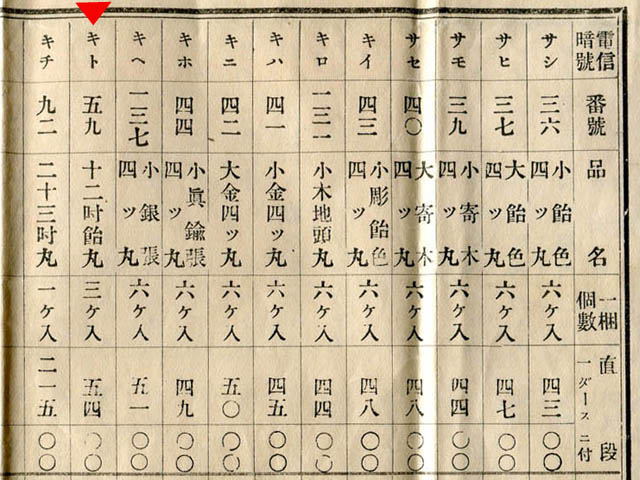 電信暗號 番號 品名 一梱個數 直段 一ダースニ付
サシ 三六 小飴色四ッ丸 六ケ入 四三 〇〇
サヒ 三七 大飴色四ッ丸 六ケ入 四七 〇〇
サモ 三九 小寄木四ッ丸 六ケ入 四四 〇〇
サセ 四〇 大寄木四ッ丸 六ケ入 四八 〇〇
キイ 四三 小彫飴色四ッ丸 六ケ入 四八 〇〇
キロ 一三一 小木地頭丸 六ケ入 四四 〇〇
キハ 四一 小金四ッ丸 六ケ入 四五 〇〇
キニ 四二 大金四ッ丸 六ケ入 五〇 〇〇
キホ 四四 小眞鍮張四ッ丸 六ケ入 四九 〇〇
キヘ 一三七 小銀張四ッ丸 六ケ入 五一 〇〇
キト 五九 十二吋飴丸 三ケ入 五四 〇〇
キチ 九二 二十三吋丸 一ケ入 二一五 〇〇